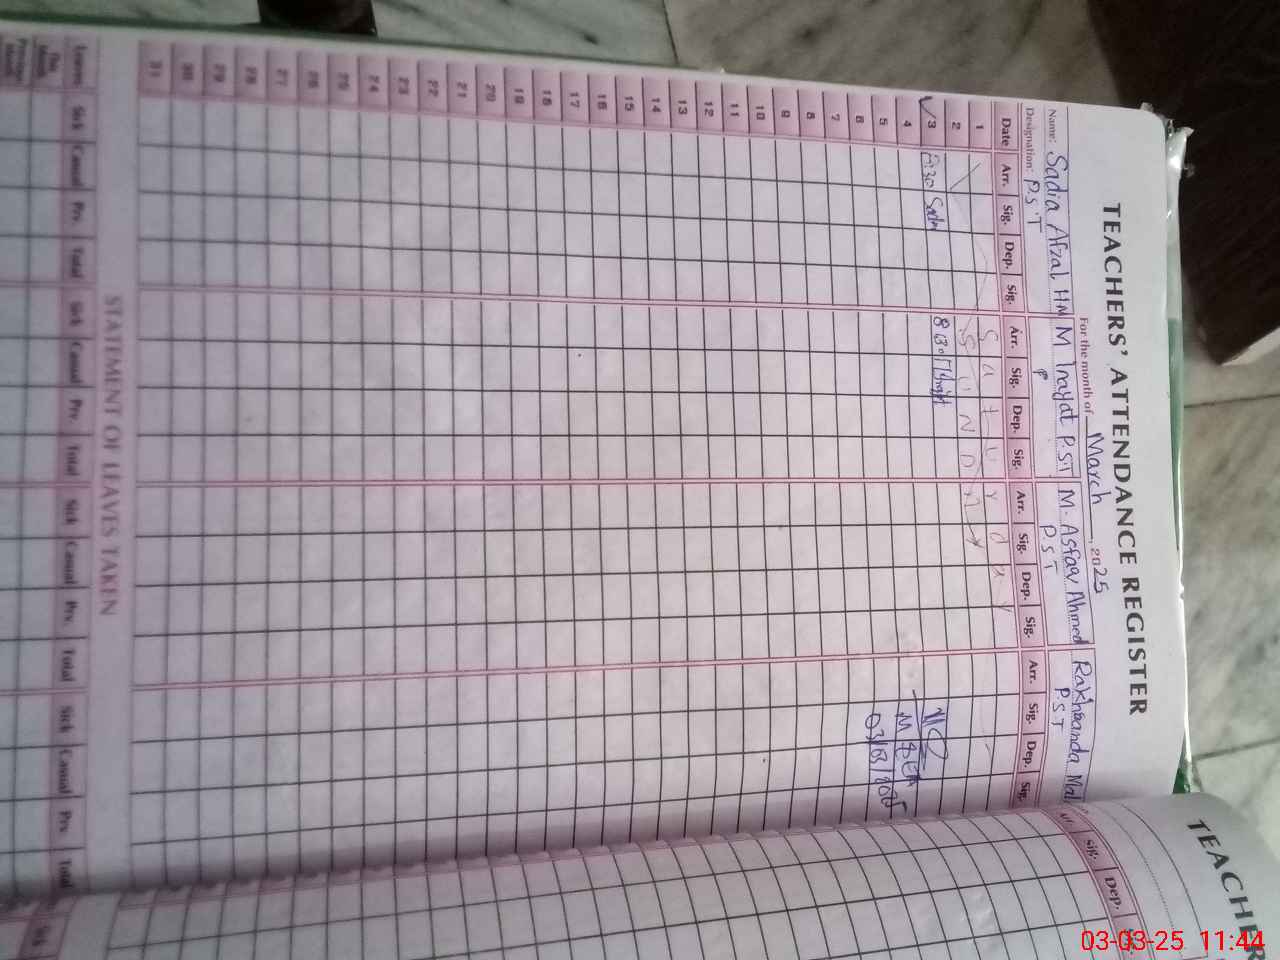 TEACHERS' ATTENDANCE REGISTER
For the month of March, 2025
Name: Sadia Afzal HM M Inayat P.S.T M. Asfaq Ahmed Rakhsanda Mal
Designation: P.S.T P.S.T P.S.T
Date Arr. Sig. Dep. Sig. Arr. Sig. Dep. Sig. Arr. Sig. Dep. Sig. Arr. Sig. Dep. Sig.
1 S a t u r d a y
2 S U N D
3 8:30 8:30
4
5 03/03/
6
7
8
9
10
11
12
13
14
15
16
17
18
19
20
21
22
23
24
25
26
27
28
29
30
31
STATEMENT OF LEAVES TAKEN
Leaves Sick Casual Prv. Total Sick Casual Prv. Total Sick Casual Prv. Total Sick Casual Prv. Total
This Month
Previous Month
TEACHER
Arr. Sig. Dep.
Sick
03-03-25 11:44